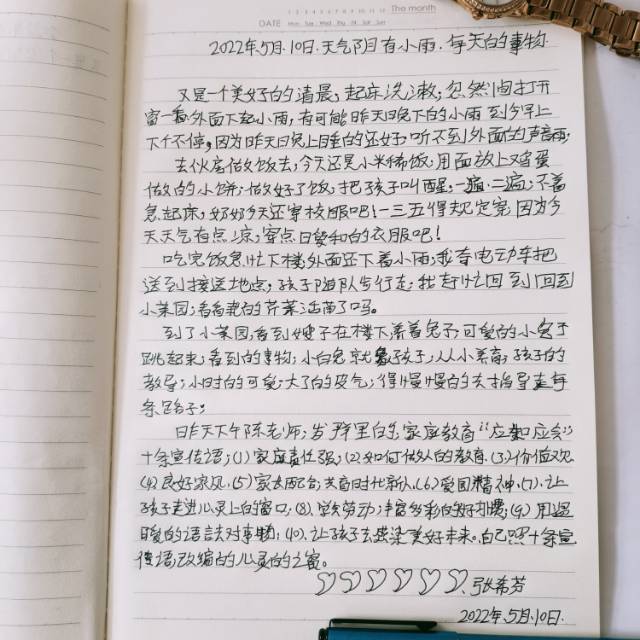 The month
DATE Mon Tue Wed Thu Fri Sat Sun
2022年5月10日.天气阴有小雨.每天的事物.
又是一个美好的清晨,起床洗漱,忽然间打开
窗一看外面下起小雨,有可能昨天晚下的小雨到今早上
下个不停,因为昨天晚上睡的还好,听不到外面的声音雨;
去伙房做饭去,今天还是小米稀饭,用面放上鸡蛋
做的小饼,做好了饭,把孩子叫醒,一遍,二遍,不着
急起床,好好今天还穿校服吧!一三五得规定穿,因为今
天天气有点凉,穿点日常和的衣服吧!
吃完饭急忙下楼外面还下着小雨,我骑电动车把
送到接送地点,孩子随队步行走,我赶忙回到回到
小菜园,看看我的芹菜活苗了吗。
到了小菜园,看到嫂子在楼下养着兔子,可爱的小兔子
跳起来,看到的事物,小白兔就象孩子,从小系育,孩子的
教导,小时的可爱,大了的皮气,得慢慢的去指导走每
条路子;
昨天下午陈老师,发群里的家庭教育"应知应会"
十条宣传语,(1)家庭责任强,(2)如何做人的教育.(3)价值观
(4)良好家风,(5)家长配合,共育时代新人(6)爱国精神.(7).让
孩子走进心灵上的窗口,(8),学会劳动,丰富多彩的好习惯;(9)用温
暖的语言去对事物,(10).让孩子去感染美好未来.自己照十条宣
传语,改编的心灵的之窗。
张希芬
2022年.5月.10日.